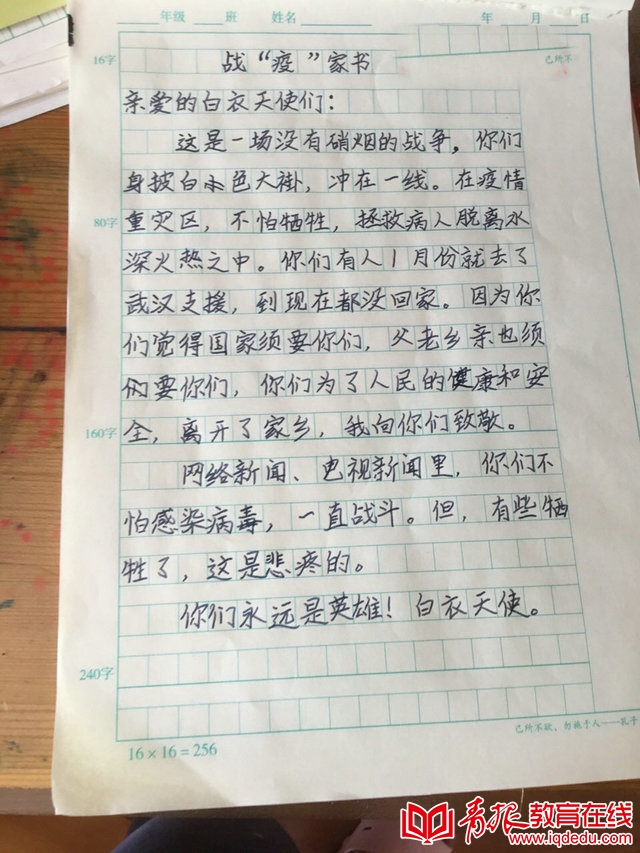 年级 班 姓名 年 月 日
16字 战“疫”家书 己所不
亲爱的白衣天使们：
这是一场没有硝烟的战争。你们
身披白色大褂，冲在一线。在疫情
80字 重灾区，不怕牺牲，拯救病人脱离水
深火热之中。你们有人1月份就去了
武汉支援，到现在都没回家。因为你
们觉得国家须要你们，父老乡亲也须
要你们，你们为了人民的健康和安
160字 全，离开了家乡，我向你们致敬。
网络新闻、电视新闻里，你们不
怕感染病毒，一直战斗。但，有些牺
牲了，这是悲疼的。
你们永远是英雄！白衣天使。
240字
己所不欲，勿施于人——孔子
16×16=256
青报教育在线
www.iqdedu.com